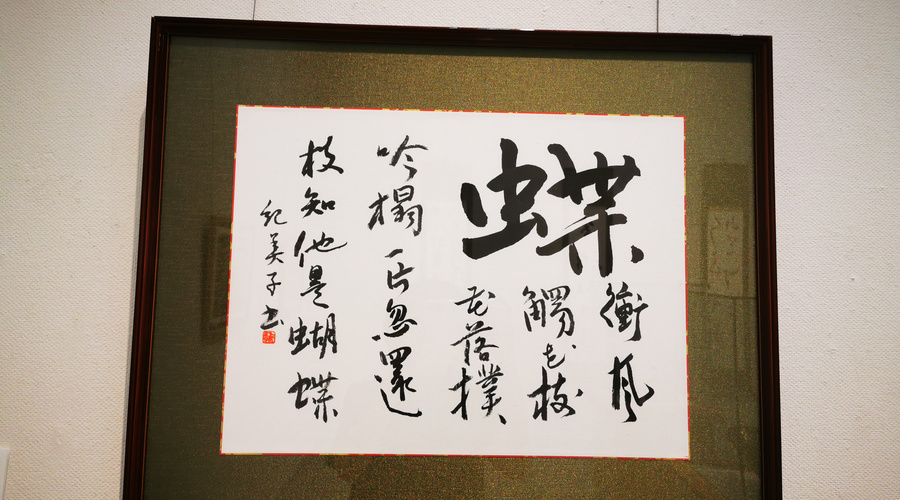 蝶
衝風
觸花枝
花落撲
吟榻一片忽還
枝知他是蝴蝶
紀美子書